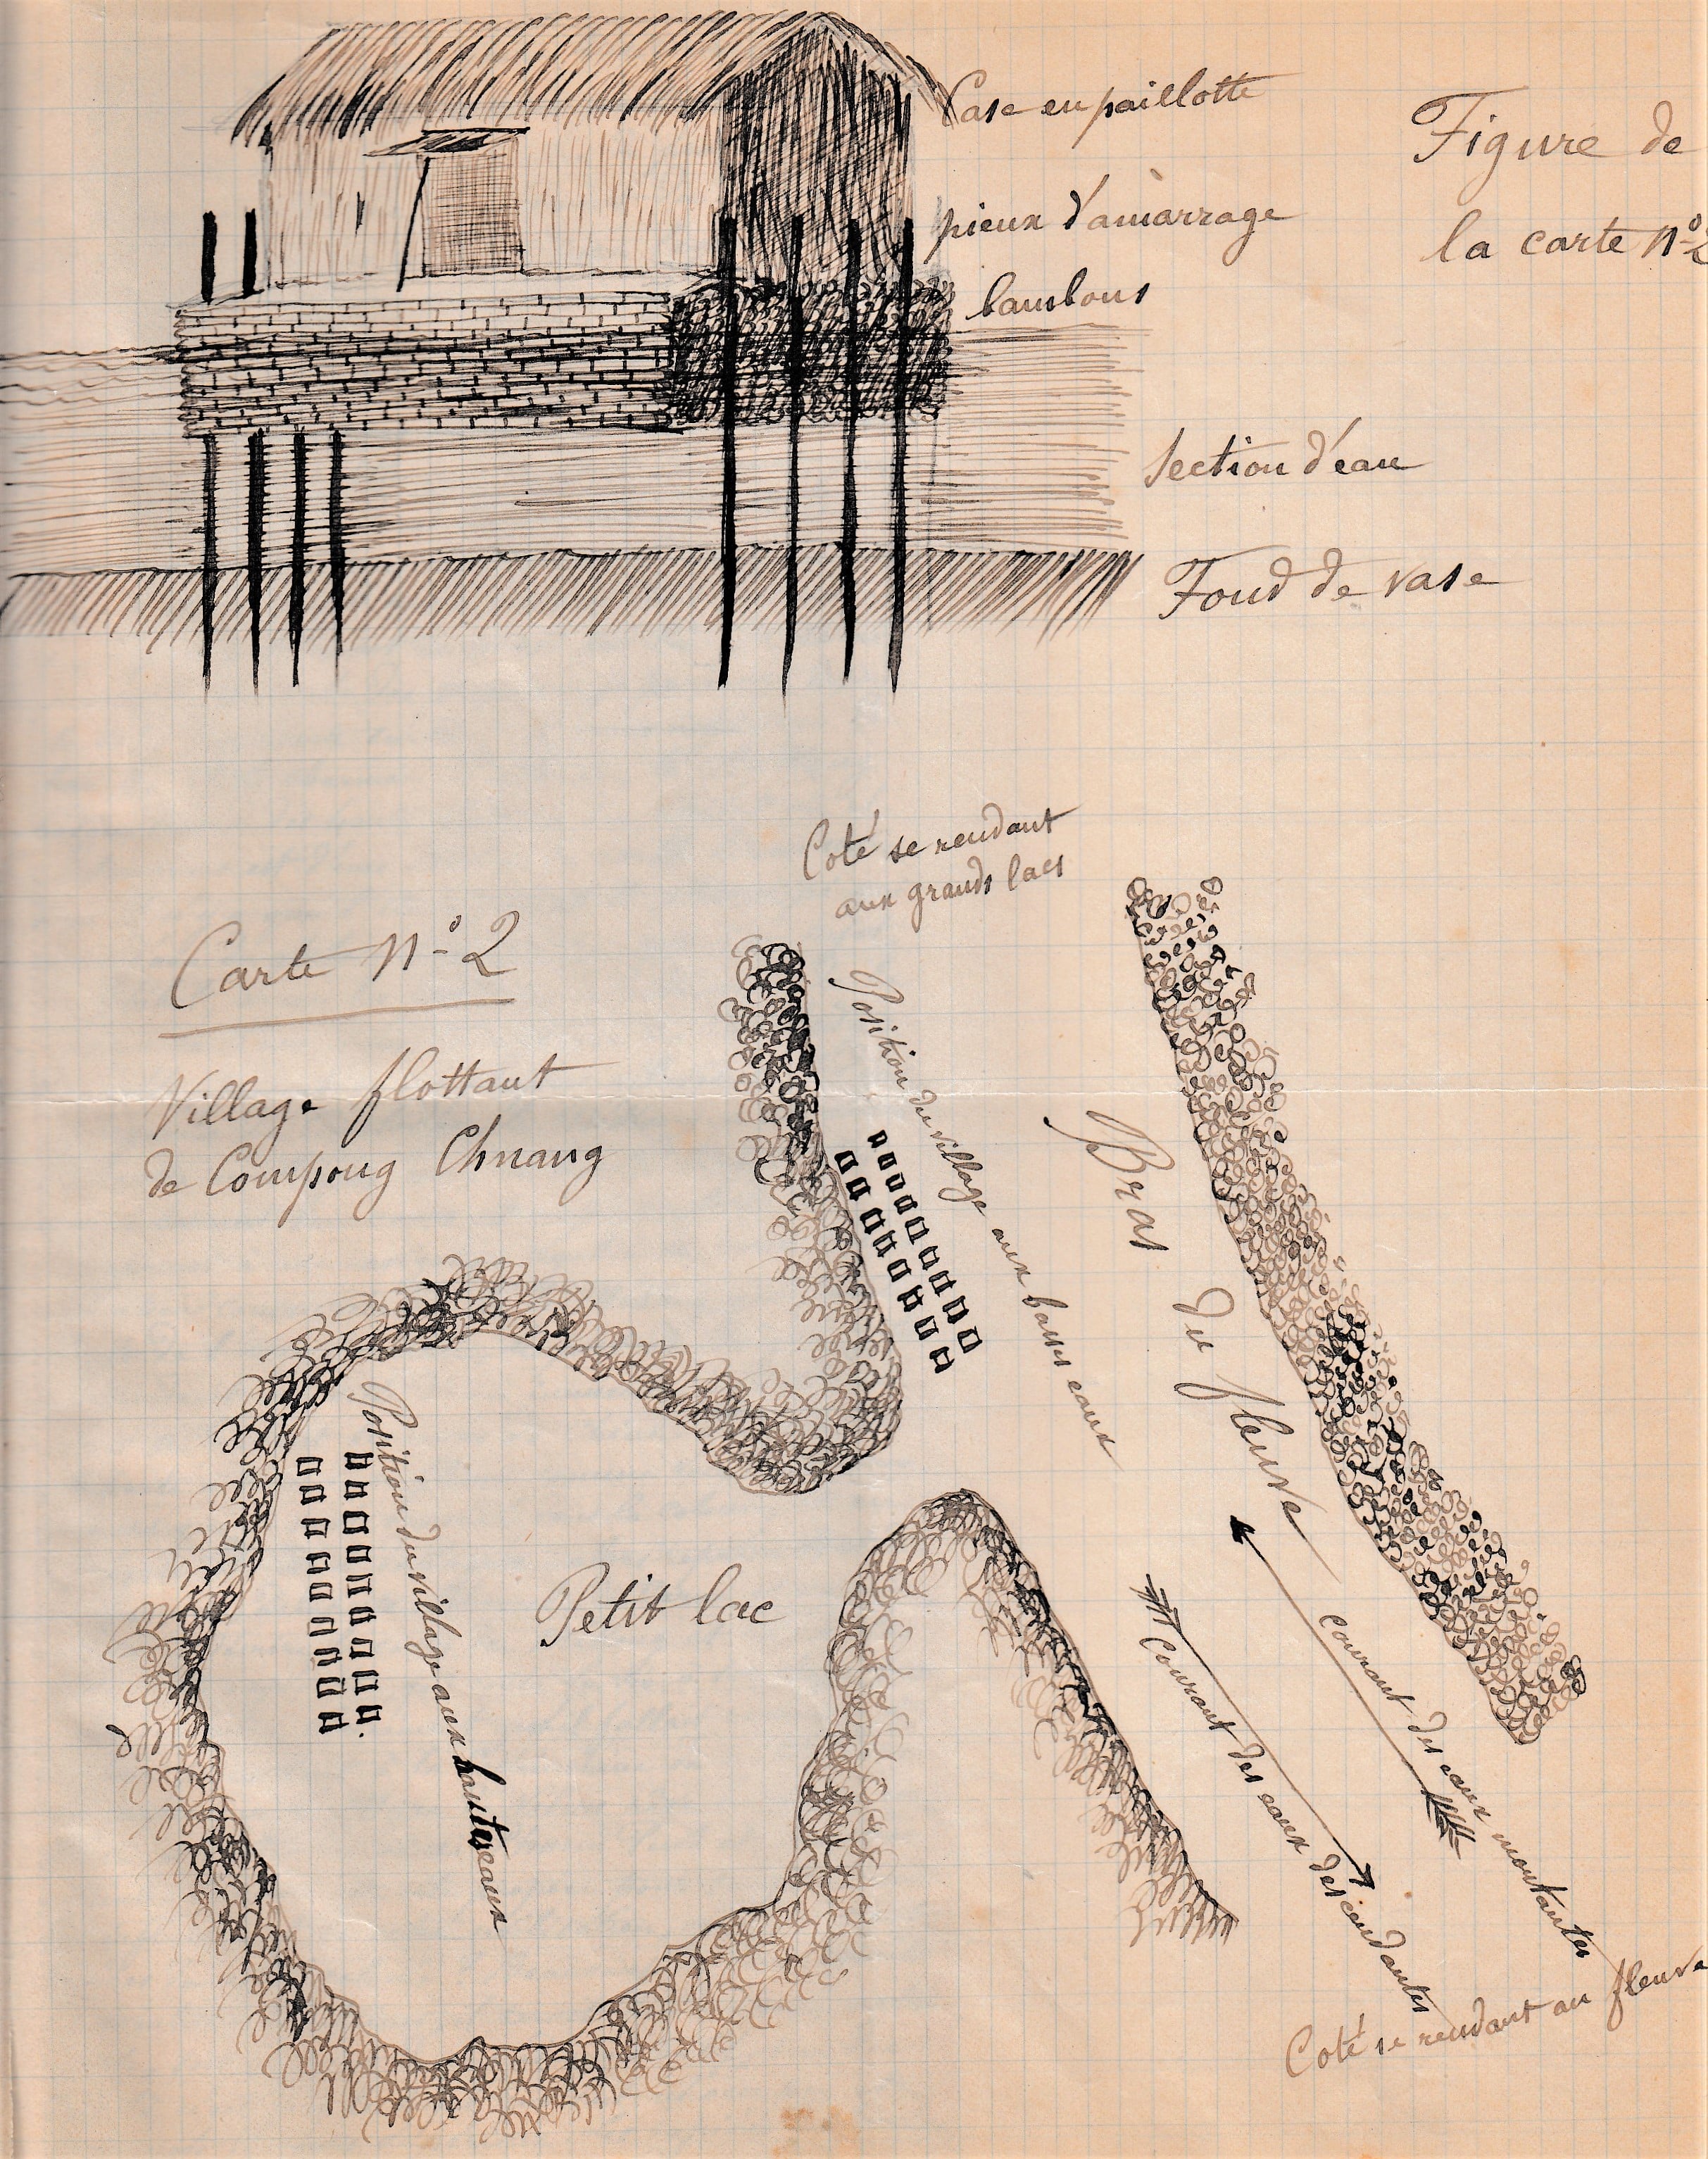 Case en paillotte
pieux d'amarrage
bambous
Figure de
la carte Nº 2
Section d'eau
Fond de vase
Coté se rendant
aux grands lacs
Carte Nº 2
Village flottant
de Compong Chnang
Position du village aux basses eaux
Bras du fleuve
Position du village aux hautes eaux
Petit lac
Courant des eaux descendantes
courant des eaux montantes
Coté se rendant au fleuve